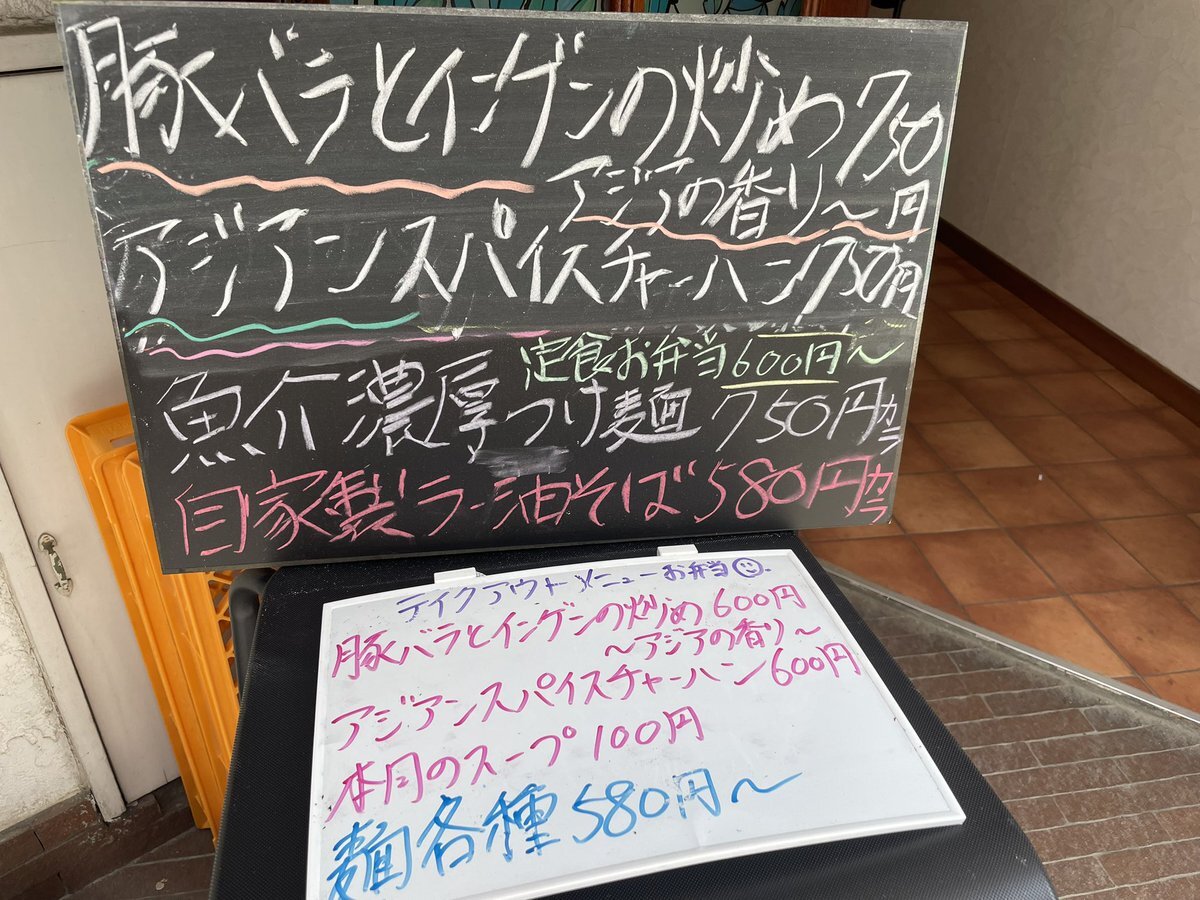 豚バラとインゲンの炒め750円
アジアの香り〜
アジアンスパイスチャーハン750円
定食お弁当600円〜
魚介濃厚つけ麺750円カラ
自家製ラー油そば580円カラ
テイクアウトメニューお弁当☺.
豚バラとインゲンの炒め600円
〜アジアの香り〜
アジアンスパイスチャーハン600円
本日のスープ100円
麺各種580円〜